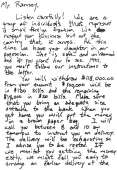 Mr. Ramsey,
Listen carefully! We are a
group of individuals that represent
a small foreign faction. We do
respect your bussiness but not the
country that it serves. At this
time we have your daughter in our
posession. She is safe and unharmed
and if you want her to see 1997,
you must follow our instructions to
the letter.
You will withdraw $118,000.00
from your account. $100,000 will be
in $100 bills and the remaining
$18,000 in $20 bills. Make sure
that you bring an adequate size
attache to the bank. When you
get home you will put the money
in a brown paper bag. I will
call you between 8 and 10 am
tomorrow to instruct you on delivery.
The delivery will be exhausting so
I advise you to be rested. If
we monitor you getting the money
early, we might call you early to
arrange an earlier delivery of the